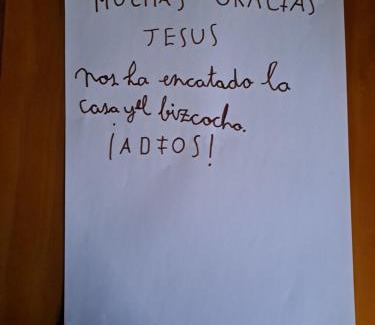 MUCHAS GRACIAS
JESUS
nos ha encatado la
casa y el bizcocho.
¡ADIOS!